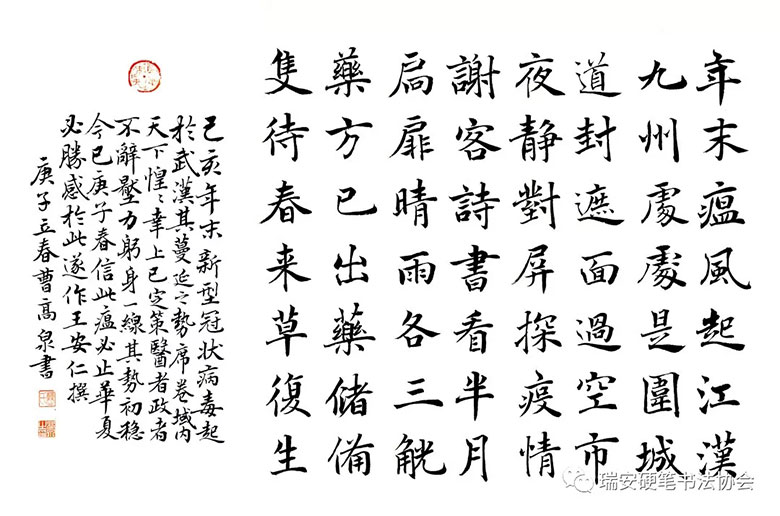 年末瘟風起江漢
九州處處是圍城
道封遮面過空市
夜靜對屏探疫情
謝客詩書看半月
扃扉晴雨各三觥
藥方已出藥儲備
隻待春来草復生
己亥年末新型冠状病毒起
於武漢其蔓延之勢席卷域内
天下惶〻幸上已定策醫者政者
不解壓力躬身一線其勢初穩
今已庚子春信此瘟必止華夏
必勝感於此遂作王安仁撰
庚子立春曹高泉書
瑞安硬笔书法协会